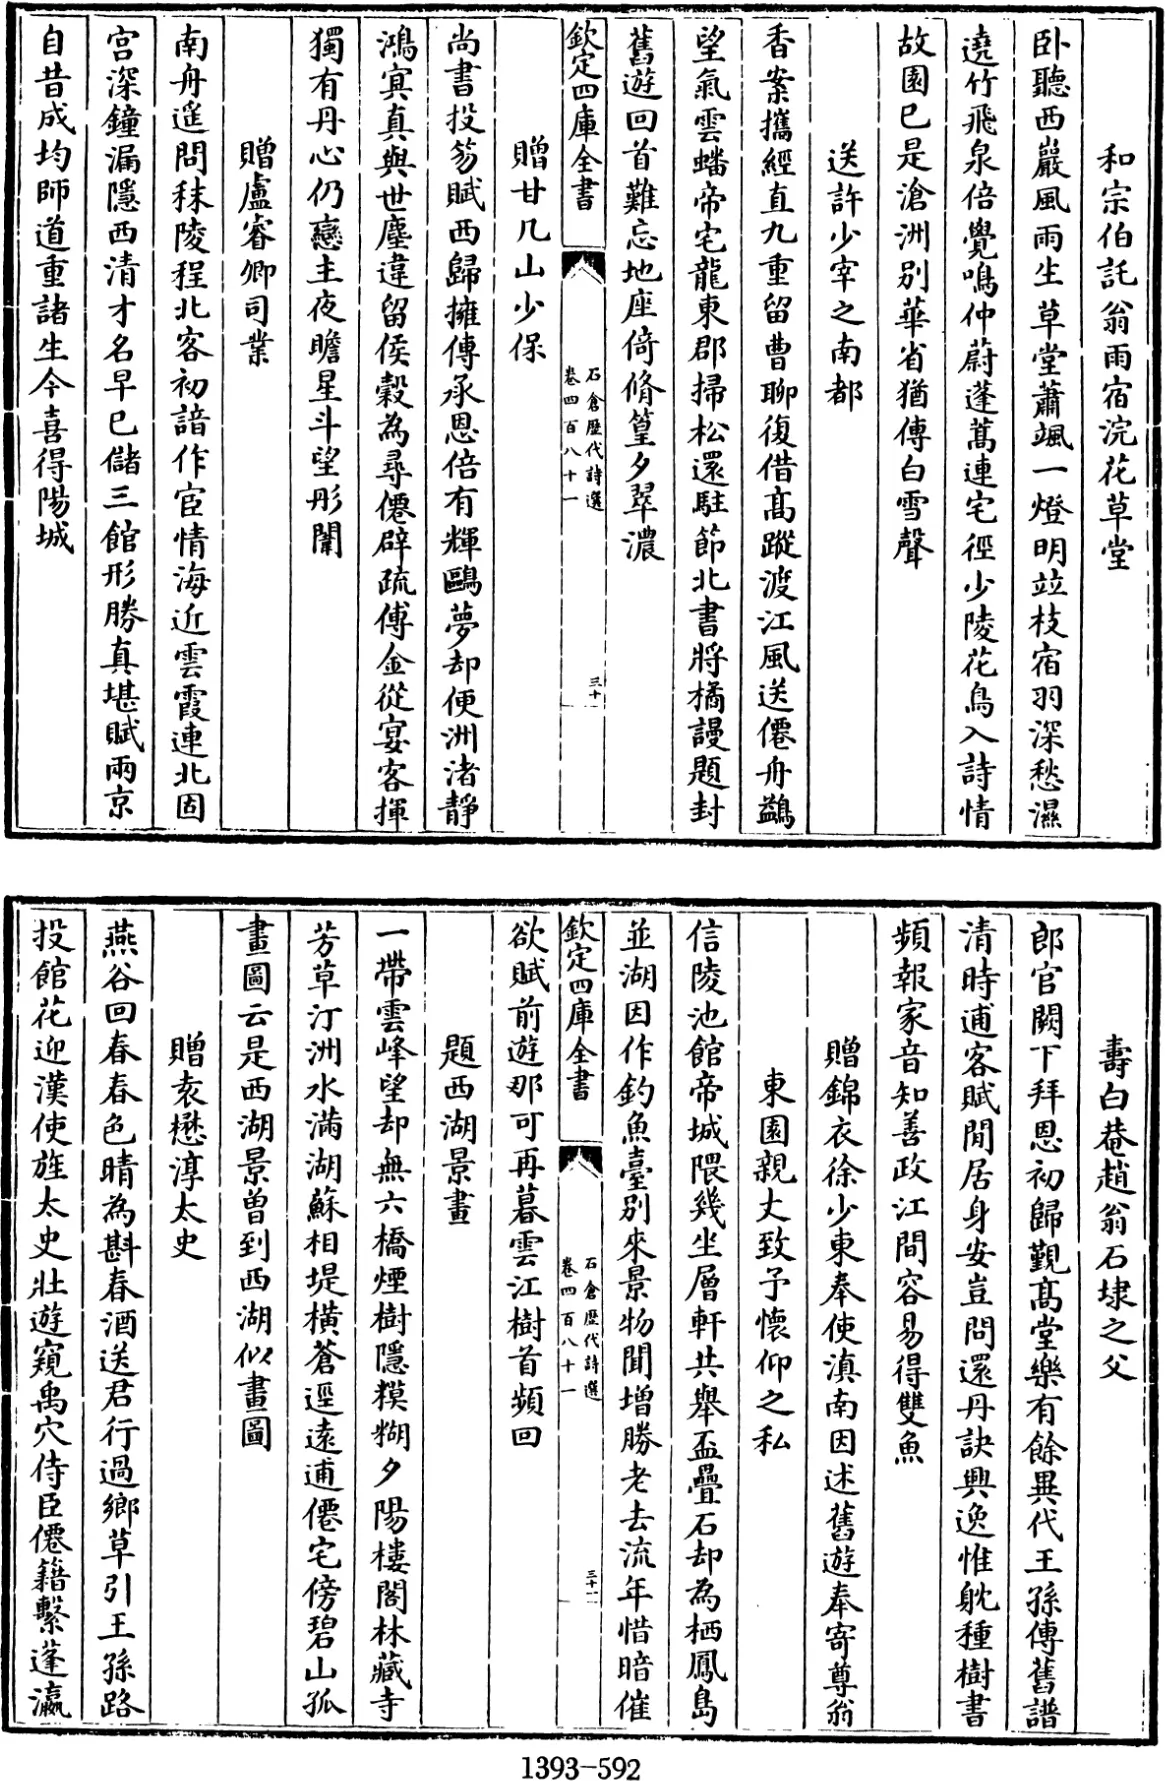 和宗伯託翁雨宿浣花草堂
卧聽西巖風雨生草堂蕭颯一燈明竝枝宿羽深愁濕
遶竹飛泉倍覺鳴仲蔚蓬蒿連宅徑少陵花鳥入詩情
故園已是滄洲别華省猶傳白雪聲
送許少宰之南都
香案攜經直九重留曹聊復借髙蹤渡江風送僊舟鷁
望氣雲蟠帝宅龍東郡掃松還駐節北書將橘謾題封
舊遊回首難忘地座倚脩篁夕翠濃
欽定四庫全書
石倉歷代詩選
卷四百八十一
三十
贈甘几山少保
尚書投笏賦西歸擁傳承恩倍有輝鷗夢却便洲渚靜
鴻冥真與世塵違留侯穀為尋僊辟疏傅金從宴客揮
獨有丹心仍戀主夜瞻星斗望彤闈
贈盧睿卿司業
南舟遥問秣陵程北客初諳作宦情海近雲霞連北固
宫深鐘漏隱西清才名早已儲三館形勝真堪賦兩京
自昔成均師道重諸生今喜得陽城
壽白菴趙翁石埭之父
郎官闕下拜恩初歸覲髙堂樂有餘異代王孫傳舊譜
清時逋客賦閒居身安豈問還丹訣興逸惟躭種樹書
頻報家音知善政江間容易得雙魚
贈錦衣徐少東奉使滇南因述舊遊奉寄尊翁
東園親丈致予懷仰之私
信陵池館帝城隈幾坐層軒共舉盃疊石却為栖鳳島
並湖因作釣魚臺别來景物聞增勝老去流年惜暗催
欽定四庫全書
石倉歷代詩選
卷四百八十一
三十一
欲賦前遊那可再暮雲江樹首頻回
題西湖景畫
一帶雲峰望却無六橋煙樹隱糢糊夕陽樓閣林藏寺
芳草汀洲水滿湖蘇相堤横蒼逕遠逋僊宅傍碧山孤
畫圖云是西湖景曽到西湖似畫圖
贈袁懋淳太史
燕谷回春春色晴為斟春酒送君行過鄉草引王孫路
投館花迎漢使旌太史壯遊窺禹穴侍臣僊籍繫蓬瀛
1393-592